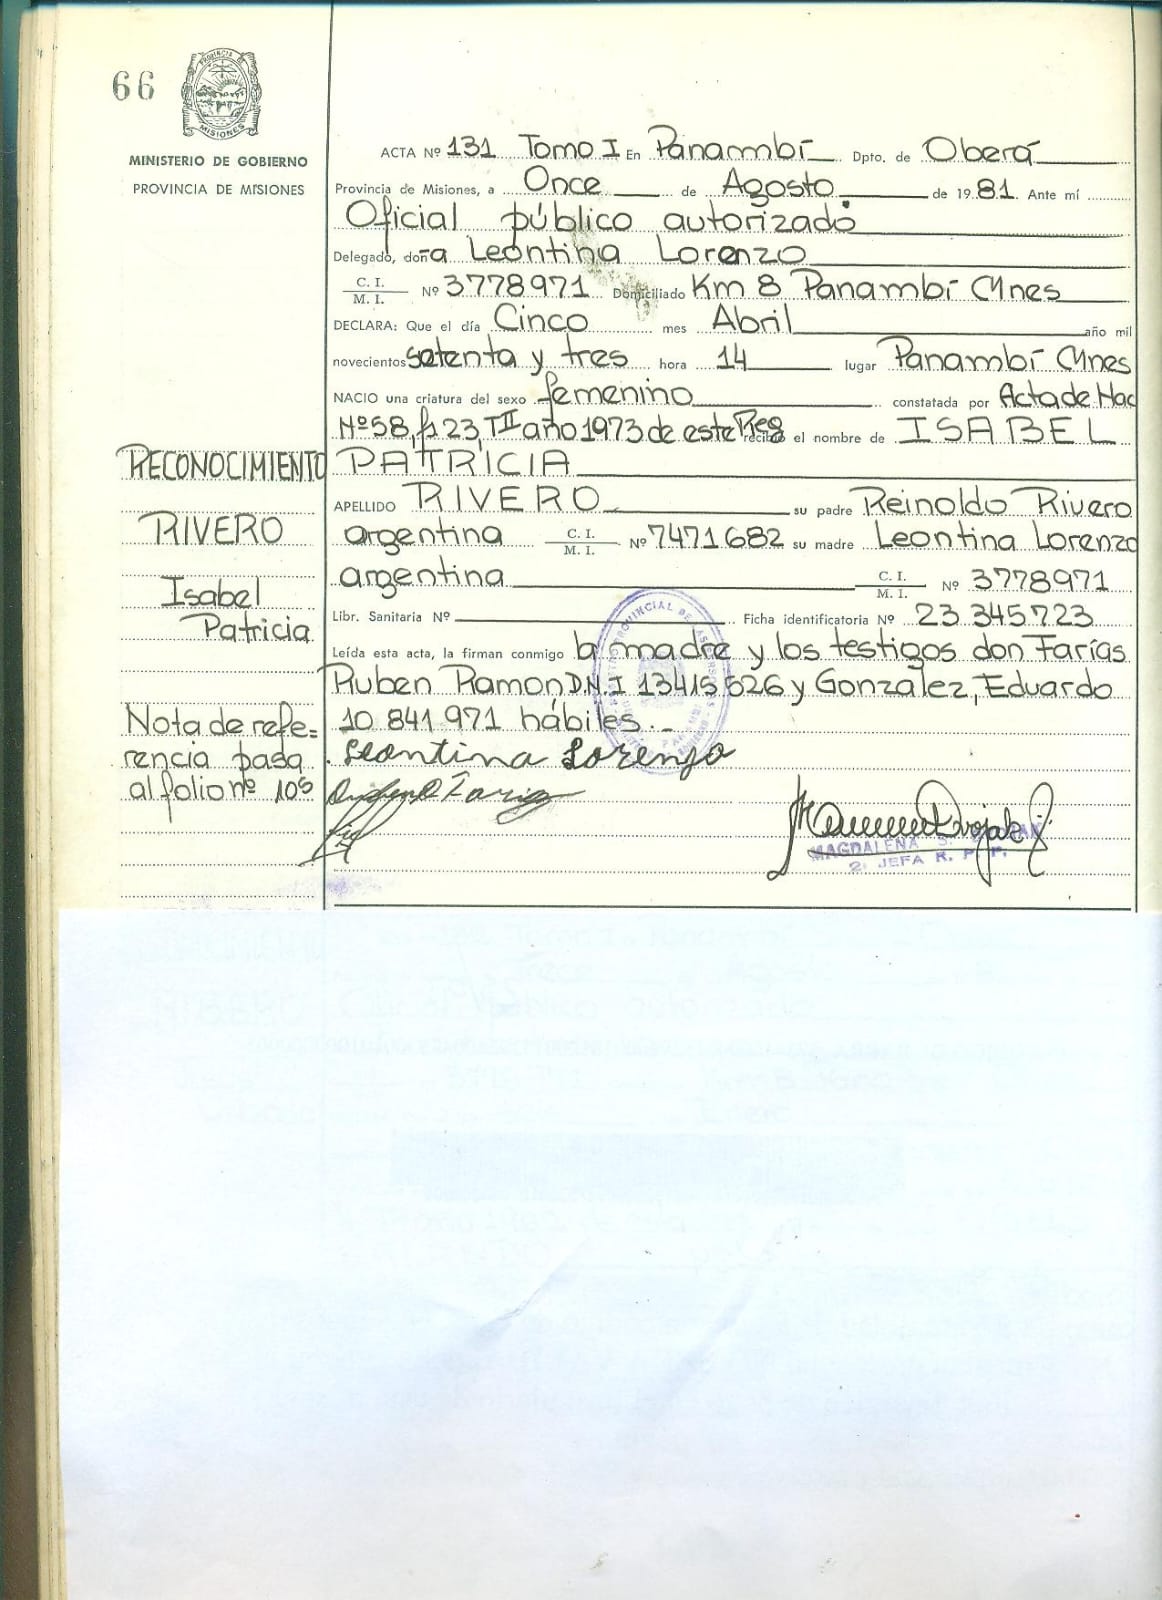 66
PROVINCIA DE
MISIONES
MINISTERIO DE GOBIERNO
PROVINCIA DE MISIONES
ACTA Nº 131 Tomo I En Panambí Dpto. de Oberá
Provincia de Misiones, a Once de Agosto de 1981. Ante mí
Oficial público autorizado
Delegado, doña Leontina Lorenzo
C. I.
M. I. Nº 3778971 Domiciliado Km 8 Panambí Mnes
DECLARA: Que el día Cinco mes Abril año mil
novecientos setenta y tres hora 14 lugar Panambí Mnes
NACIO una criatura del sexo femenino constatada por Acta de Nac
Nº 58, fs 23, T II año 1973 de este Reg recibió el nombre de ISABEL
RECONOCIMIENTO PATRICIA
APELLIDO RIVERO su padre Reinoldo Rivero
RIVERO
argentina C. I. M. I. Nº 7471682 su madre Leontina Lorenzo
argentina C. I. M. I. Nº 3778971
Isabel
Patricia
Libr. Sanitaria Nº Ficha identificatoria Nº 23.345.723
Leída esta acta, la firman conmigo la madre y los testigos don Farías
Ruben Ramon D.N.I 13415626 y Gonzalez, Eduardo
10.841.971 hábiles.
Nota de refe=
rencia pasa
al folio nº 105
Leontina Lorenzo
MAGDALENA S.
2. JEFA R. P. P.